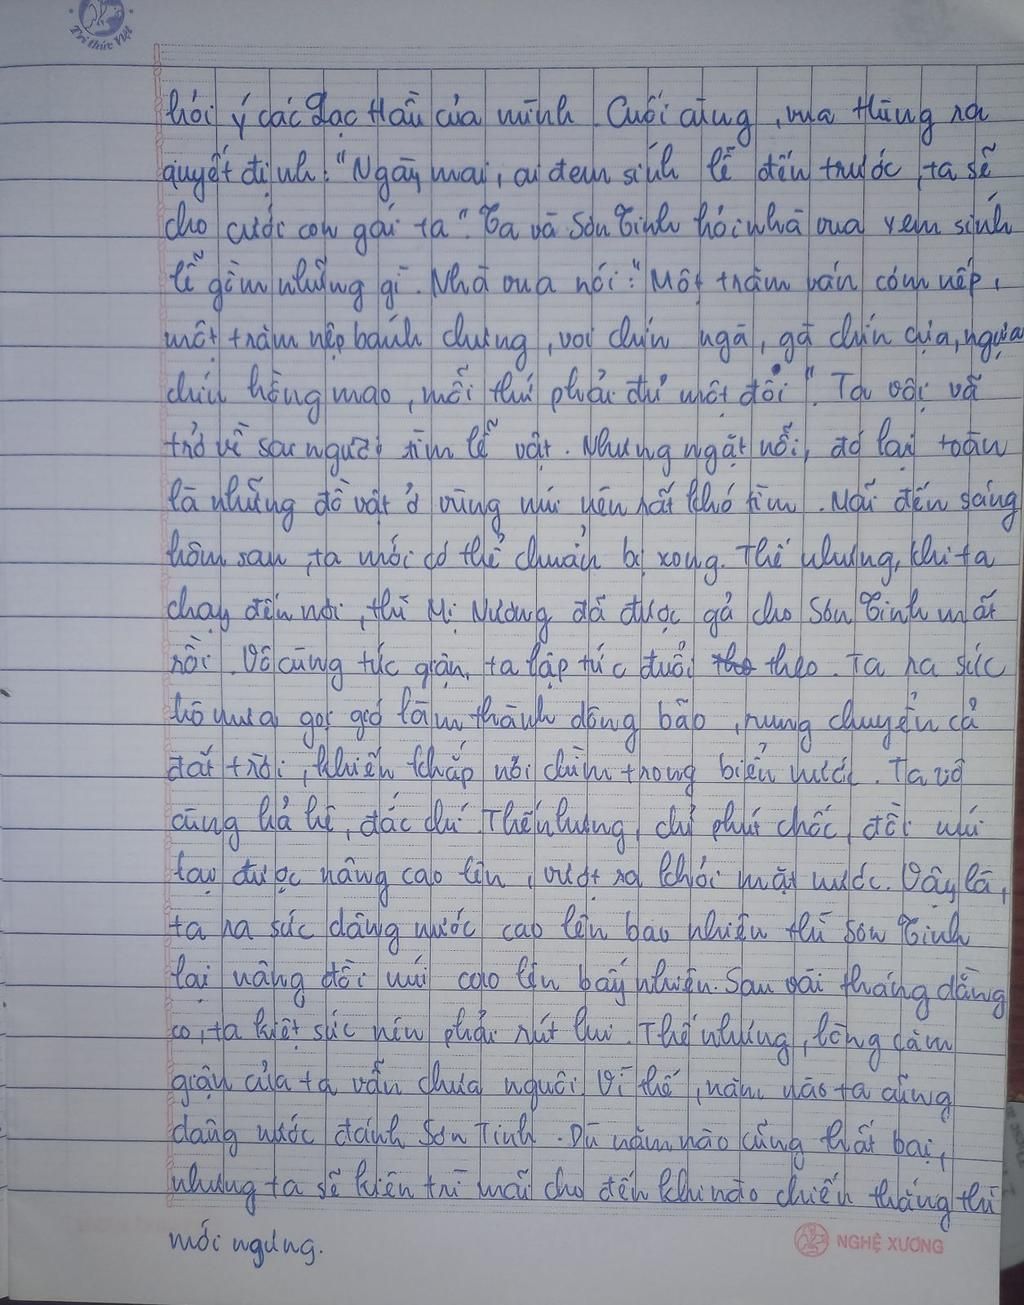 Tri thức Việt
hỏi ý các Lạc Hầu của mình. Cuối cùng, vua Hùng ra
quyết định: "Ngày mai, ai đem sính lễ đến trước, ta sẽ
cho cưới con gái ta". Ta và Sơn Tinh hỏi nhà vua xem sính
lễ gồm những gì. Nhà vua nói: "Một trăm ván cơm nếp,
một trăm nệp bánh chưng, voi chín ngà, gà chín cựa, ngựa
chín hồng mao, mỗi thứ phải đủ một đôi". Ta vội vã
trở về sai người tìm lễ vật. Nhưng ngặt nỗi, đó lại toàn
là những đồ vật ở vùng núi nên rất khó tìm. Mãi đến sáng
hôm sau, ta mới có thể chuẩn bị xong. Thế nhưng, khi ta
chạy đến nơi, thì Mị Nương đã được gả cho Sơn Tinh mất
rồi. Vô cùng tức giận, ta lập tức đuổi theo. Ta ra sức
hô mưa gọi gió làm thành dông bão, rung chuyển cả
đất trời, khiến khắp nơi chìm trong biển nước. Ta vô
cùng hả hê, đắc chí. Thế nhưng, chỉ phút chốc, đồi núi
lại được nâng cao lên, vượt ra khỏi mặt nước. Vậy là,
ta ra sức dâng nước cao lên bao nhiêu thì Sơn Tinh
lại nâng đồi núi cao lên bấy nhiêu. Sau vài tháng dằng
co, ta kiệt sức nên phải rút lui. Thế nhưng, lòng căm
giận của ta vẫn chưa nguôi. Vì thế, năm nào ta cũng
dâng nước đánh Sơn Tinh. Dù năm nào cũng thất bại,
nhưng ta sẽ kiên trì mãi cho đến khi nào chiến thắng thì
mới ngưng.
NGHỆ XƯƠNG